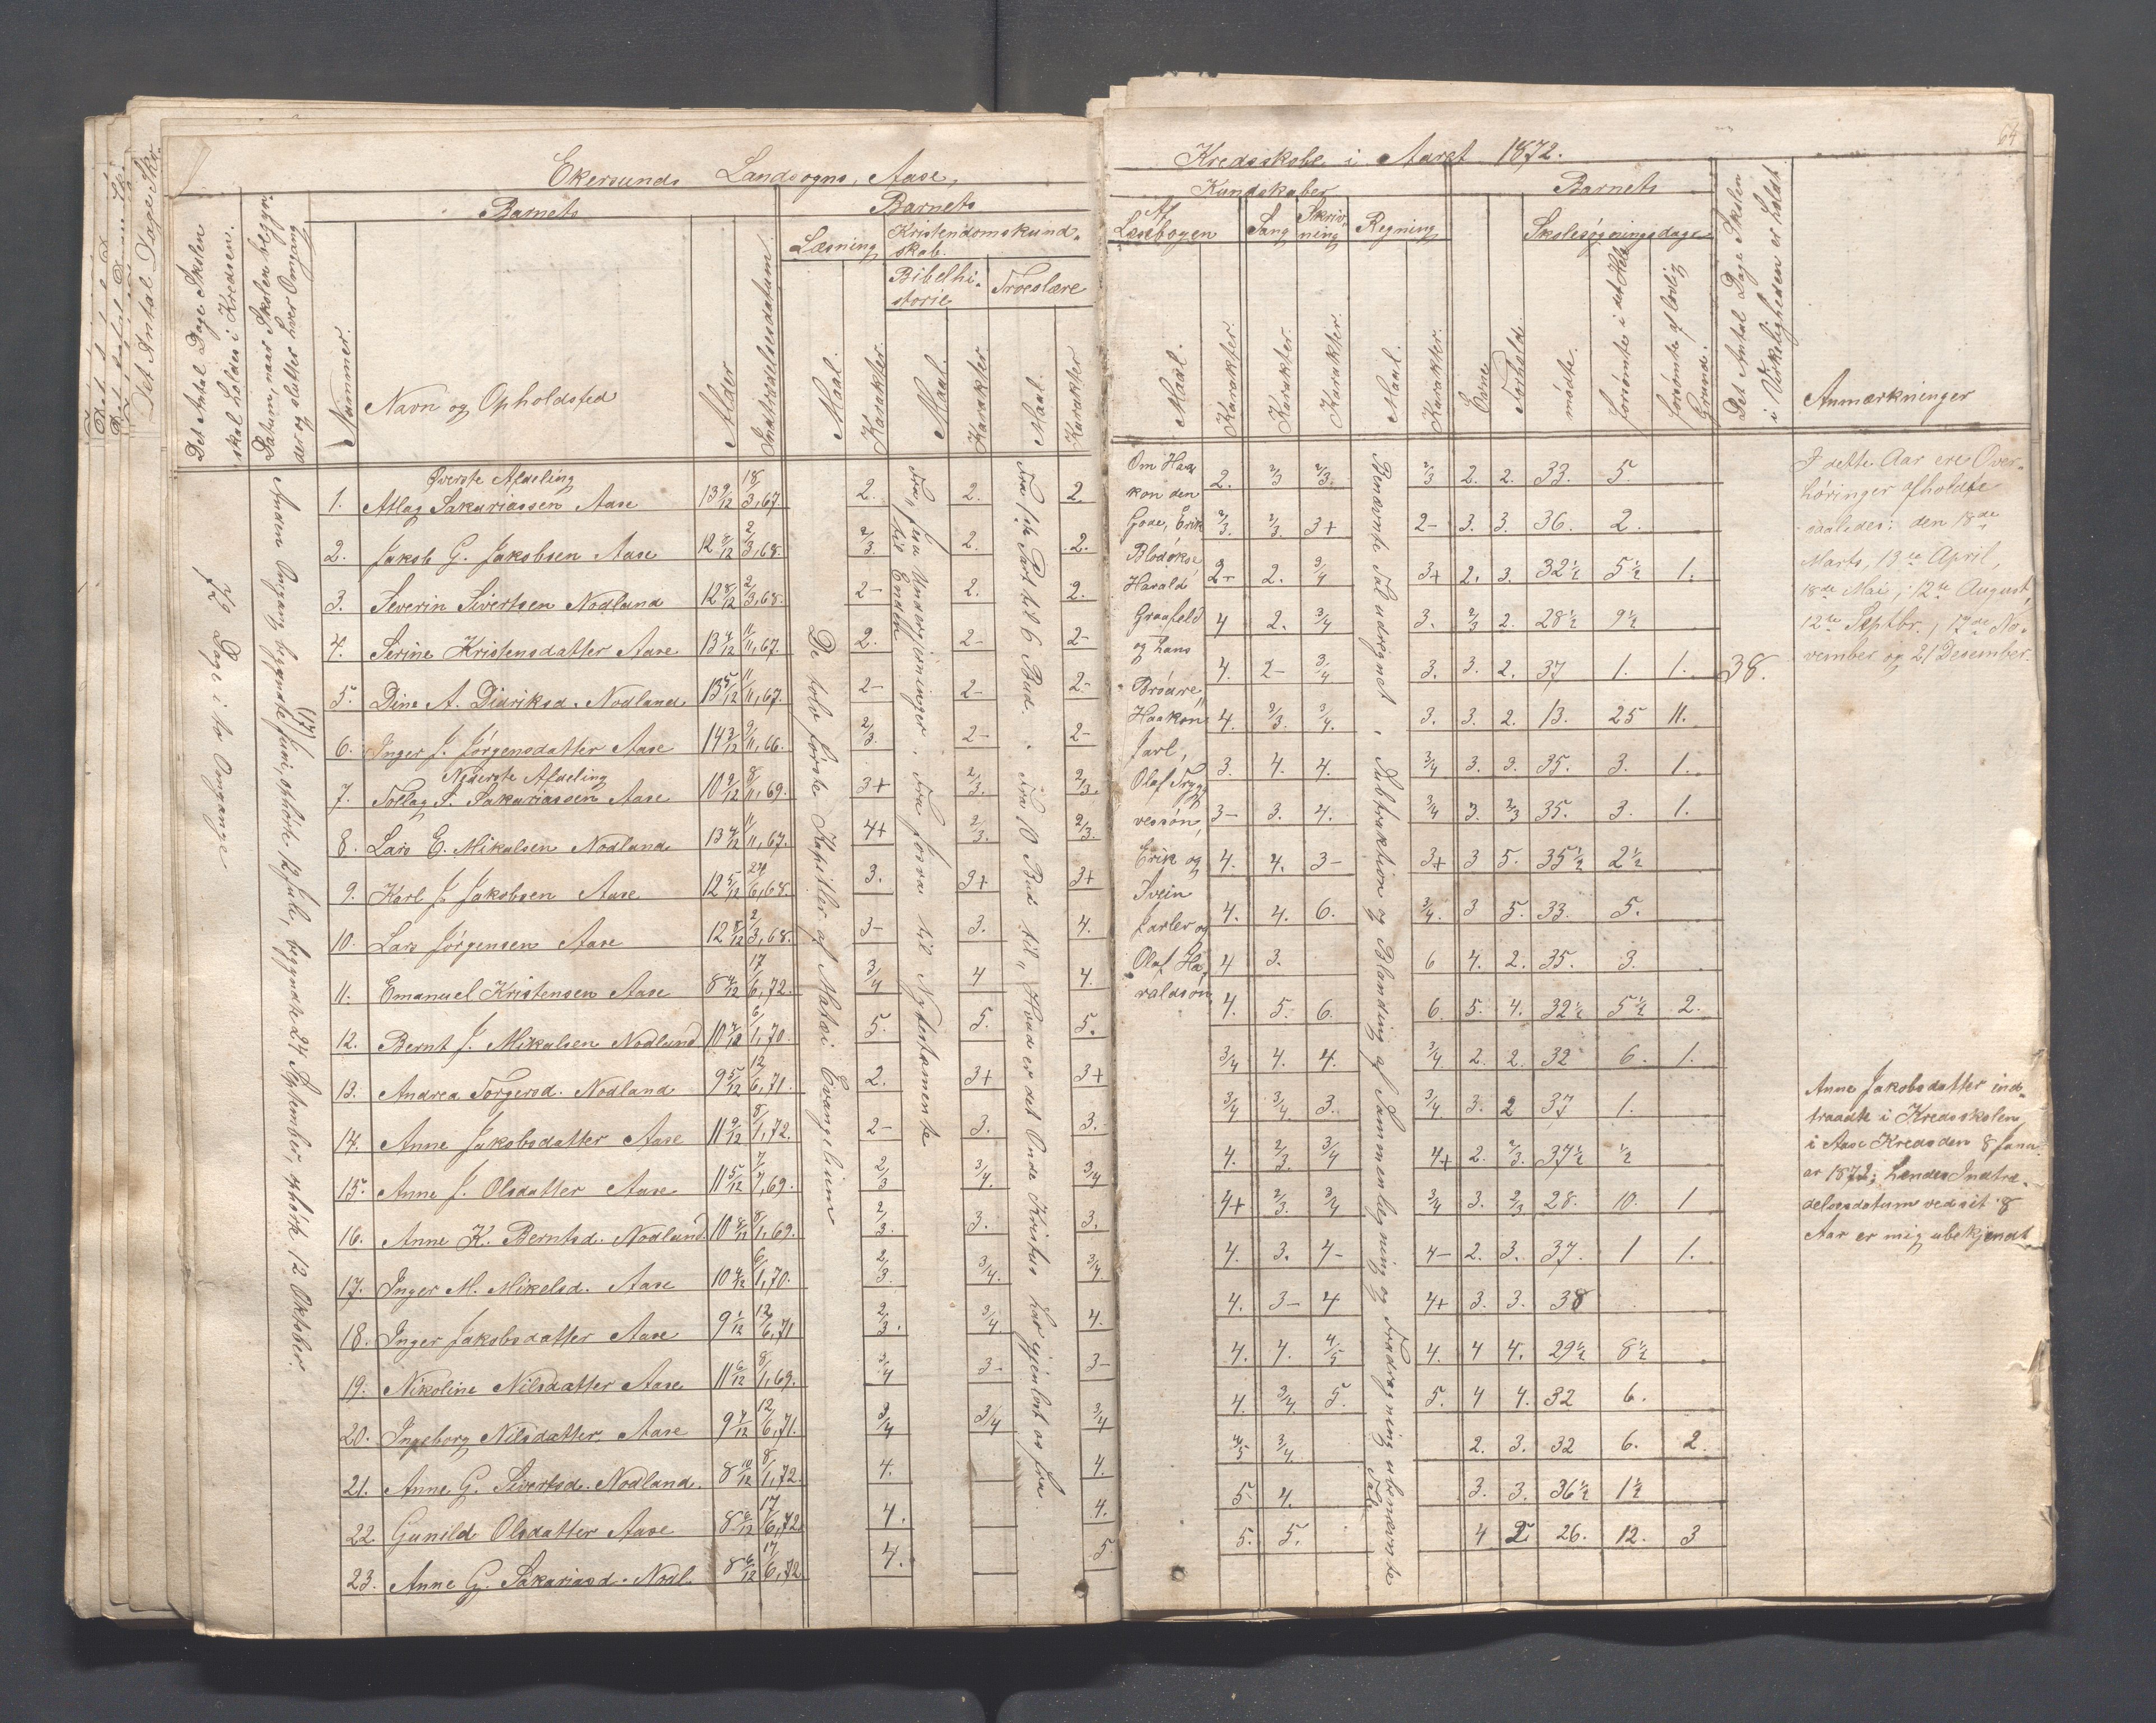 Ekersunds Landsogns, Aase,
Det Antal Dage Skolen
skal holdes i Kredsen.
Datum, naar Skolen begyn-
der og slutter hver Omgang
Barnets
Barnets
Nummer.
Navn og Opholdsted
Alder
Indtrædelsesdatum.
Læsning
Kristendomskund-
skab.
Bibelhi-
storie
Troeslære
Maal.
Karakter.
Maal.
Karakter
Maal.
Karakter
Dage i to Omgange
Anden Omgang begyndte (17) Juni, ophörte 12 Juli, begyndte 24 September, ophörte 12 Oktober.
De tolv første Kapitler af Matæi Evangelium
Fra Jesu Undergjerninger til Enden. Fra forva til Nytestamente
Fra 1ste Part til 6 Bud. Fra 10 Bud til „ Hvad er det Onde Kristus har gjenløst os fra
Øverste Afdeling
1. Atlag Sakariassen Aase 13 9/12 18/3, 67. 2. 2. 2.
2. Jakob G. Jakobsen Aase 12 8/12 2/3, 68. 2/3. 2. 2.
3. Severin Sivertsen Nodland 12 8/12 2/3, 68. 2- 2. 2.
4. Serine Kristensdatter Aase 13 4/12 11/11, 67. 2. 2- 2-
5. Dine A. Didriksd. Nodland 13 5/12 11/11, 67. 2- 2- 2-
6. Inger J. Jörgensdatter Aase 14 2/12 9/11, 66. 2/3. 2- 2-
Nederste Afdeling
7. Tollag S. Sakariassen Aase 10 9/12 8/11, 69. 3+ 2/3. 2/3.
8. Lars E. Mikalsen Nodland 13 4/12 11/11, 67. 4+ 2/3. 2/3.
9. Karl J. Jakobsen Aase 12 5/12 29/6, 68. 3. 3+ 3+
10. Lars Jörgensen Aase 12 8/12 2/3, 68. 3- 3. 4.
11. Emanuel Kristensen Aase 8 4/12 17/6, 72. 3/4 4 4.
12. Bernt J. Mikalsen Nodland 10 4/12 6/1, 70. 5. 5. 5.
13. Andrea Torgersd. Nodland 9 5/12 12/6, 71. 2. 3+ 3+
14. Anne Jakobsdatter Aase 11 9/12 8/1, 72. 2- 3. 3.
15. Anne J. Olsdatter Aase 11 5/12 7/7, 69. 2/3 3/4. 3/4
16. Anne K. Berntsd. Nodland. 10 8/12 8/1, 69. 2/3. 3. 3.
17. Inger M. Mikelsd. Aase 10 4/12 6/1, 70. 2/3. 3/4. 3/4.
18. Inger Jakobsdatter Aase 9 1/12 12/6, 71 2/3. 3/4 4.
19. Nikoline Nilsdatter Aase 11 6/12 8/1, 69. 3/4 3- 3-
20. Ingeborg Nilsdatter Aase 9 4/12 12/6, 71. 3/4 3/4 3/4
21. Anne G. Sivertsd. Nodland. 8 10/12 8/1, 72. 4. 4.
22. Gunild Olsdatter Aase 8 6/12 17/6, 72. 4. 4.
23. Anne G. Sakariasd. Nodl. 8 6/12 17/6, 72 4. 5.
64
Kredsskole i Aaret 1872.
Kundskaber
Barnets
Af
Læsebogen
Sang
Skriv-
ning
Regning
Skolesøgningsdage
Maal.
Karakter.
Karakter.
Karakter.
Maal.
Karakter.
Evne
Forhold.
mødte.
forsømte i det Hele
forsømte af lovlig
Grund.
Det Antal Dage Skolen
i Virkeligheden er holdt
Anmærkninger
Om Haa
kon den
Gode, Erik
Blodøkse
Harald
Graafeld
og hans
Brödre,
Haakon
Jarl,
Olaf Tryg-
vessøn,
Erik og
Svein
Jarler og
Olaf Ha-
raldsøn
Benævnte Tal udregnet. Subtraktion og Blanding af Sammenlægning og Fradragning ubenævnte Tal.
2. 2/3 2/3. 2/3 2. 2. 33. 5.
2/3. 2/3. 3+ 2- 3. 3. 36. 2.
2- 2. 3/4 3+ 2. 3. 32½ 5½ 1.
4 2. 3/4 3. 2/3 2. 28½ 9½
4. 2- 3/4 3. 3. 2. 37 1. 1. 38.
4. 2/3. 3/4. 3. 3. 2. 13. 25 11.
3. 4. 4. 3/4 3. 3. 35. 3. 1.
3- 3. 4. 3/4 3. 2/3 35. 3. 1.
4. 4. 3- 3+ 3 5. 35½ 2½
4. 4. 6. 3/4. 3 5. 33. 5.
4 3. 6 4. 2. 35. 3.
4. 5. 6. 6. 5. 4. 32½ 5½ 2.
3/4 4. 4. 3/4 2. 2. 32 6. 1.
3/4 3/4 3. 3/4 3. 2 37 1.
4. 2/3. 3/4 4+ 2. 2/3. 37½ ½
4+ 2/3. 3/4 3/4 3. 2/3 28. 10. 1
4. 3. 4- 4- 2. 3. 37. 1 1.
4. 3- 4 4+ 3. 3. 38
4. 4. 4/5 4. 4 4. 29½ 8½
4. 3/4. 5. 5. 4 4. 32 6.
4/5 3/4. 2. 3. 32 6. 2.
5 4. 3. 3. 36½ 1½
5. 5. 4 2. 26. 12. 3
I dette Aar ere Over-
høringer afholdte
saaledes: den 18de
Marts, 13de April
18de Mai; 12te August,
12te Septbr., 17de No-
vember og 21 Desember.
Anne Jakobsdatter ind-
traadte i Kredsskolen
i Aase Kreds den 8 Janu
ar 1872; hendes Indtræ-
delsesdatum ved sit 8
Aar er mig ubekjendt